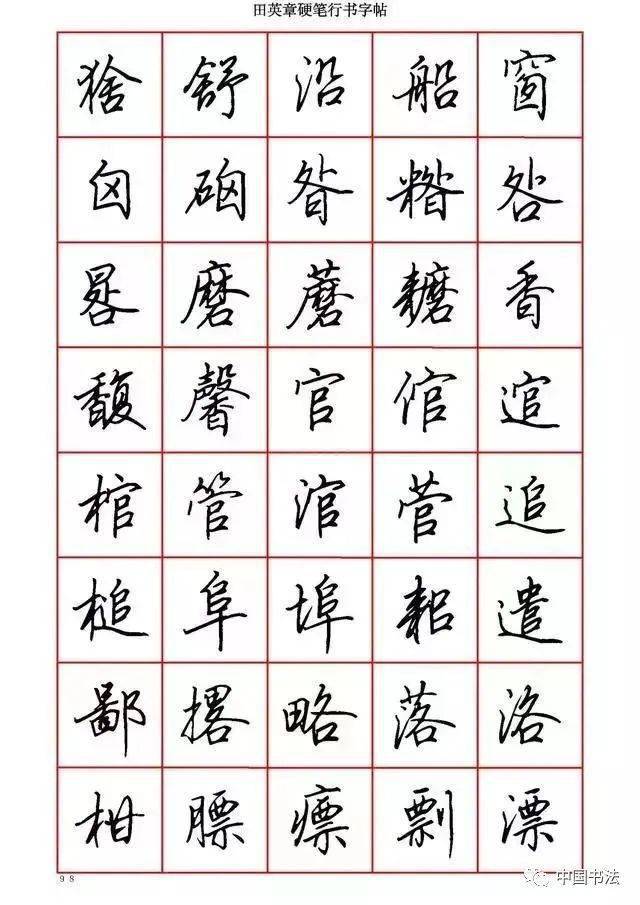 田英章硬笔行书字帖
猞 舒 沿 船 窗
囟 硇 昝 糌 咎
晷 磨 蘑 耱 香
馥 馨 官 倌 逭
棺 管 涫 菅 追
槌 阜 埠 耜 遣
鄙 撂 略 落 洛
柑 膘 瘭 剽 漂
98
中国书法